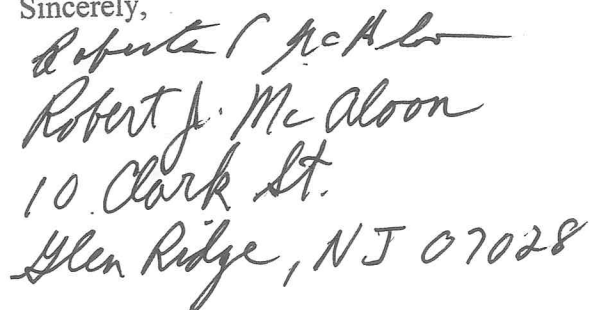 Sincerely,
Robert J McAloon
Robert J. McAloon
10 Clark St.
Glen Ridge, NJ 07028